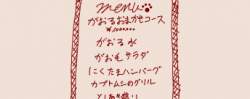 menu
がおるおまかせコース
がおる水
がおもサラダ
にくたまハンバーグ
カブトムシのグリル